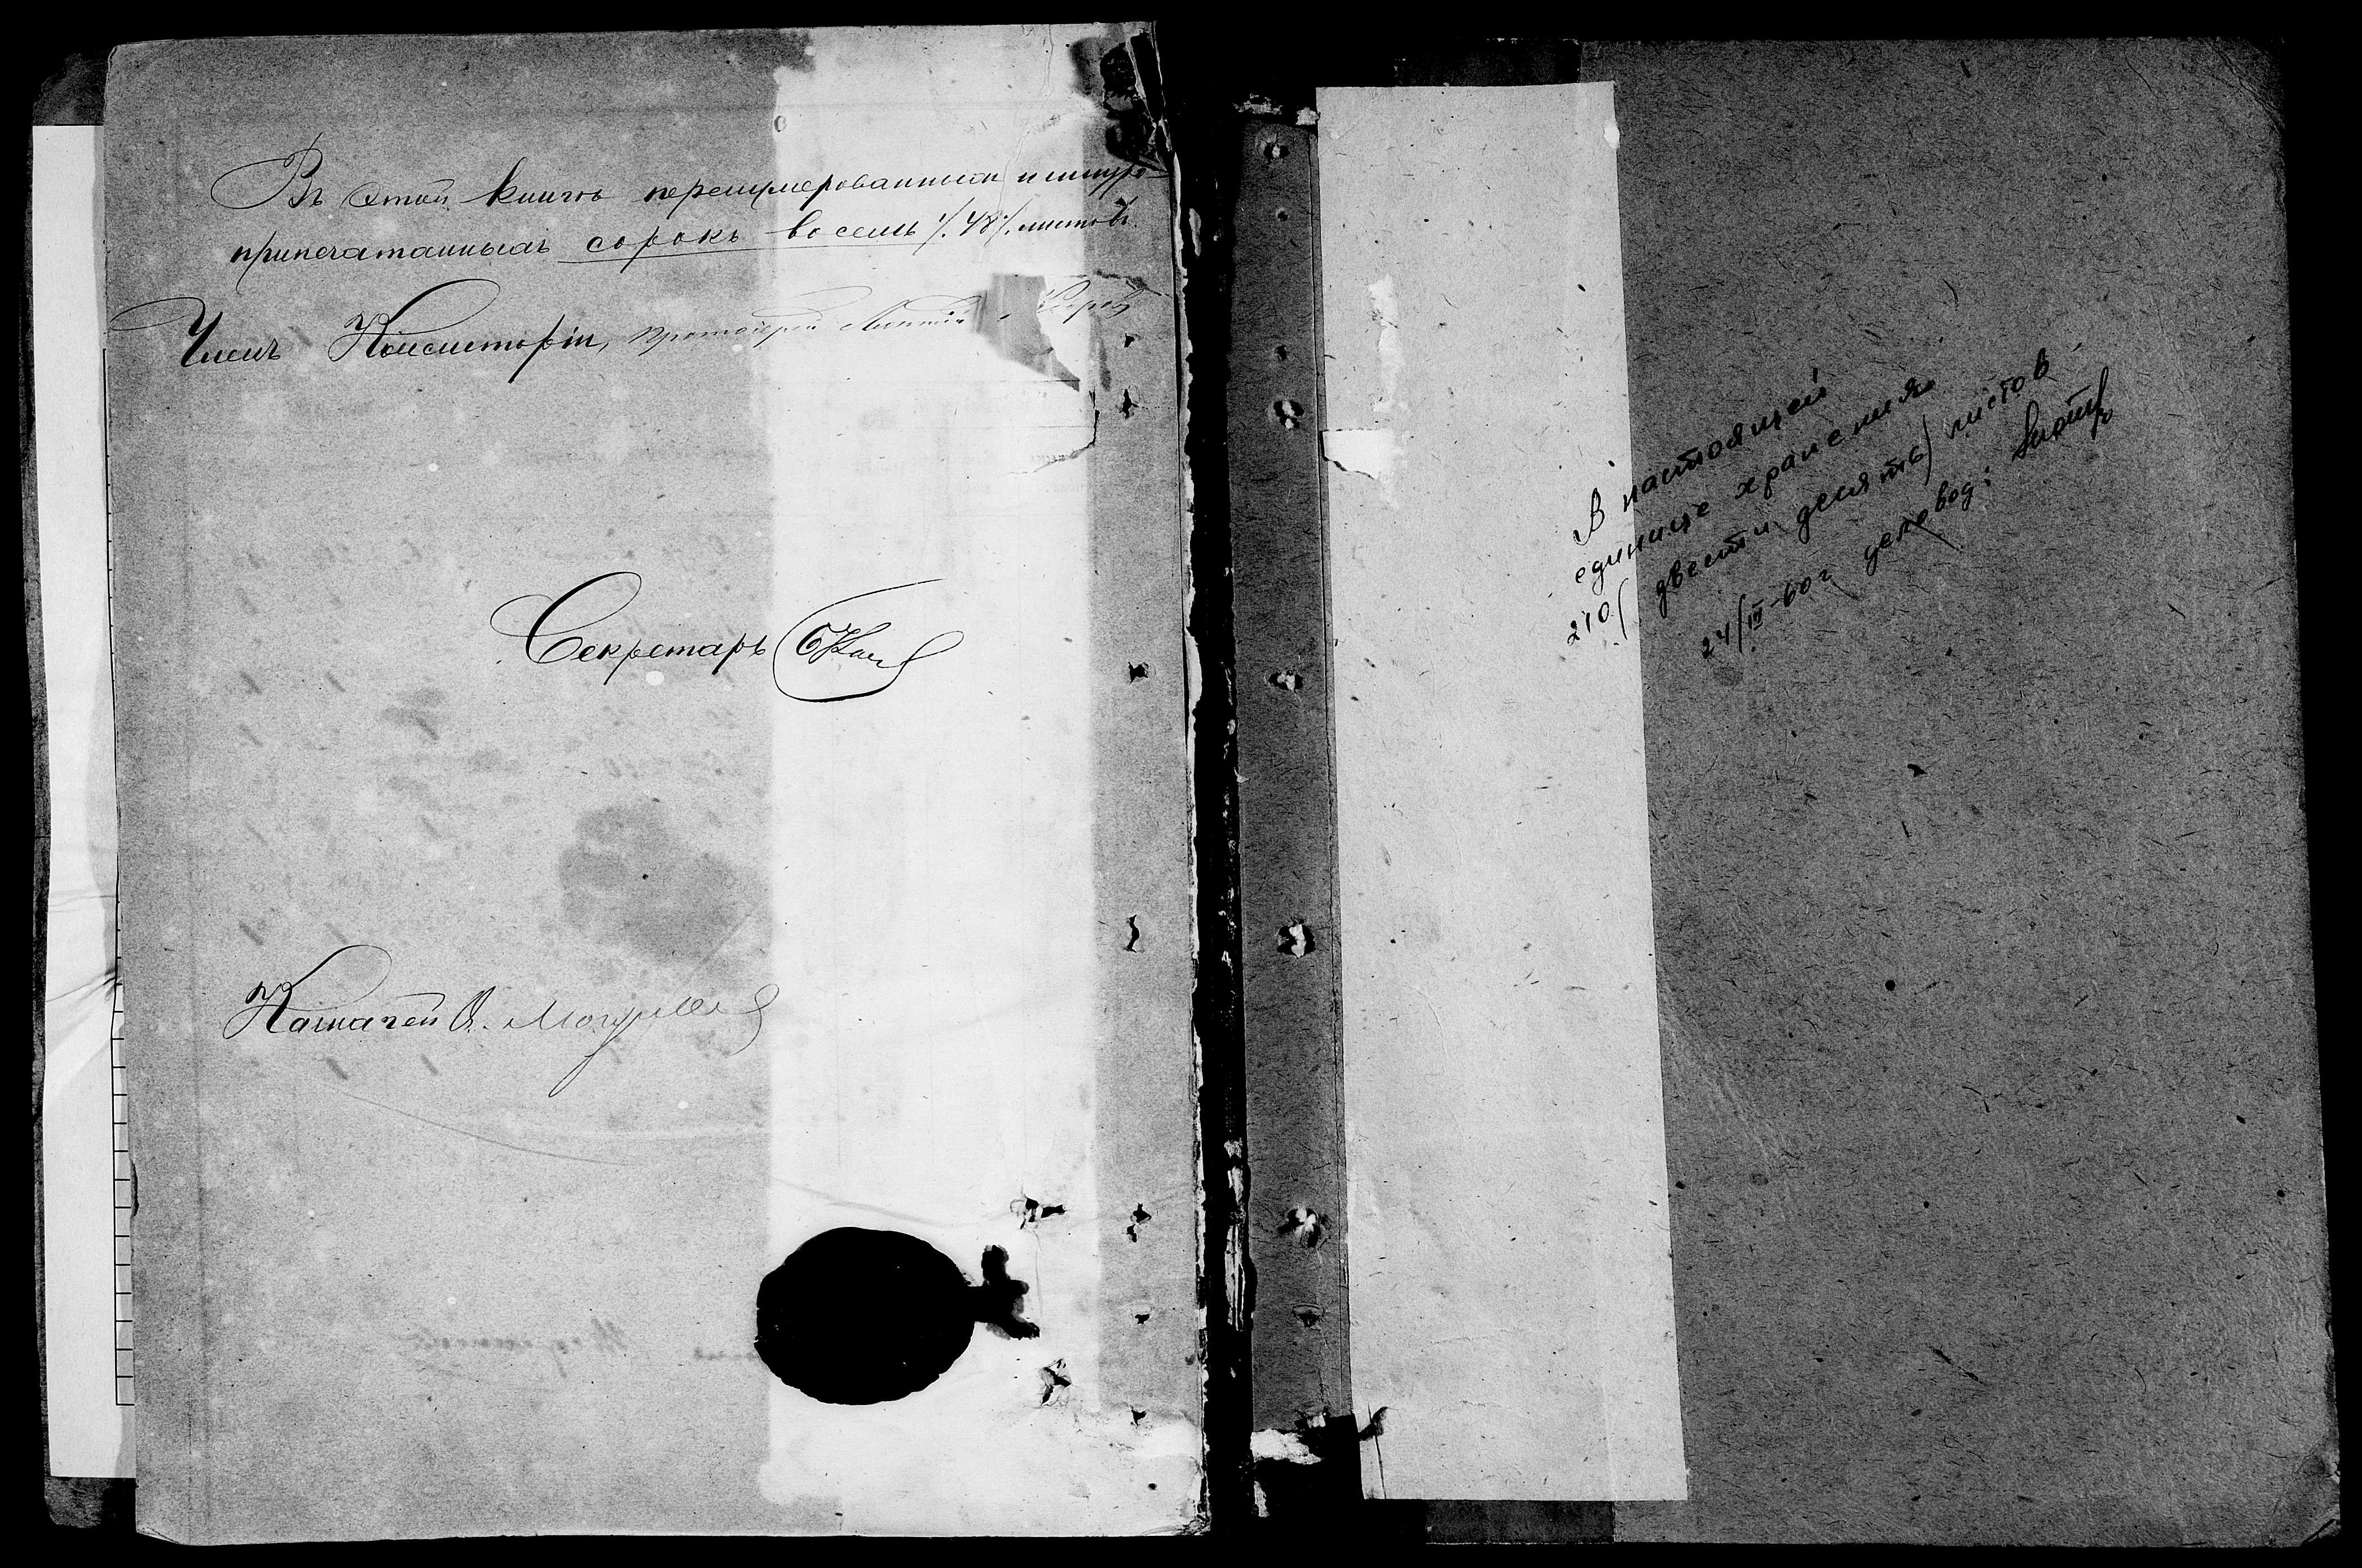 Въ этой книгѣ перенумерованныхъ и шнуро
припечатанныхъ сорокъ восемь /.48/. листовъ.
Членъ Консисторіи, Протоіерей
Секретарь
Казначей
В настоящей
единице хранения
210 (двести десять) листов
24/III-60 г. деловод: